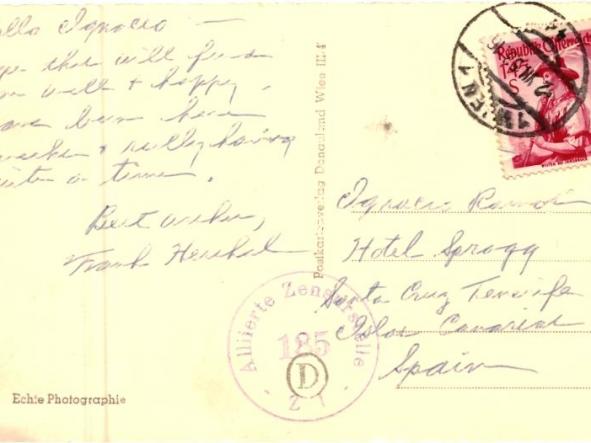 Hello Ignacio —
hope this will find
you well & happy.
Have been here
weeks & really having
quite a time.
Best wishes,
Frank
Echte Photographie
Postkartenverlag Donauland Wien III/4
Republik Österreich
1 S
1 WIEN 1
Ignacio Ramon
Hotel Spragg
Santa Cruz Tenerife
Islas Canarias
Spain
Alliierte Zensurstelle
185
D